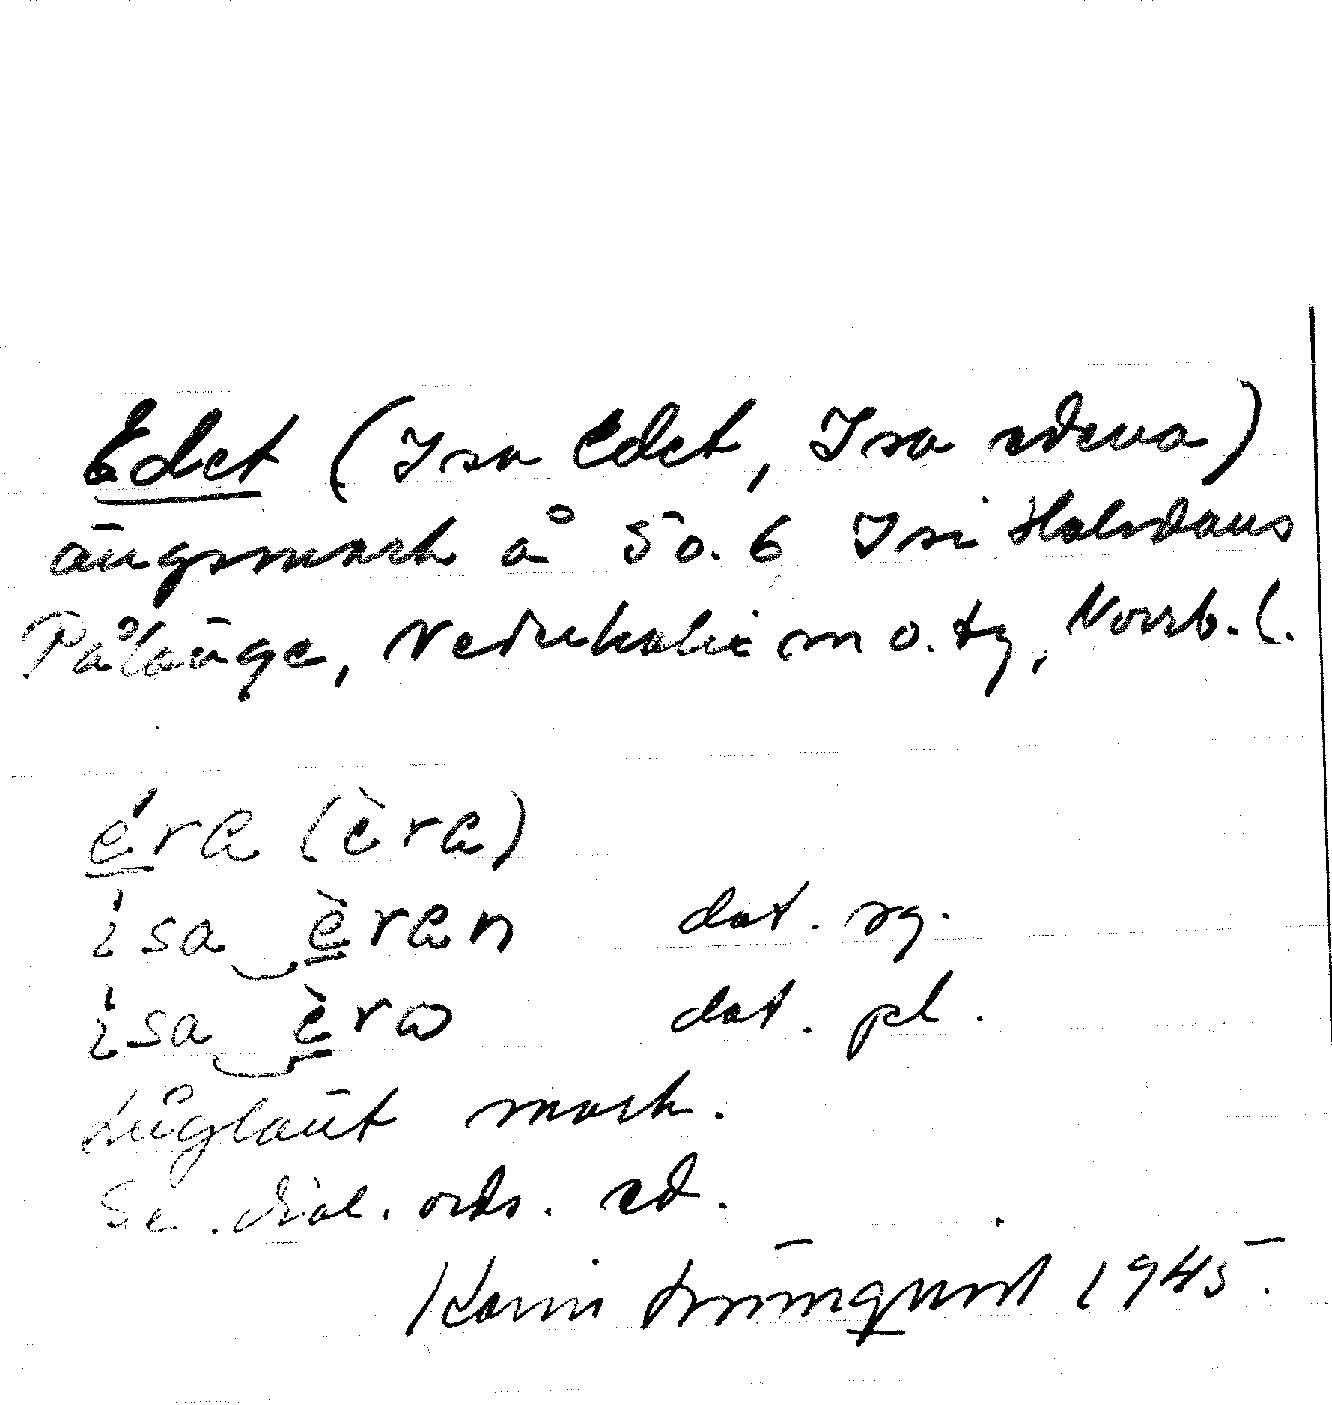 Edet (Isa edet, Isa edena)
ängsmark å So. 6 Isi Halvdans
Pålänge, Nederkalix sn o. tg, Norrb. l.
éra (èra)
isa‿èran dat. sg.
isa‿èrω dat. pl.
Låglänt mark.
Se dial. ords. ed.
Karin Strömquist 1945.